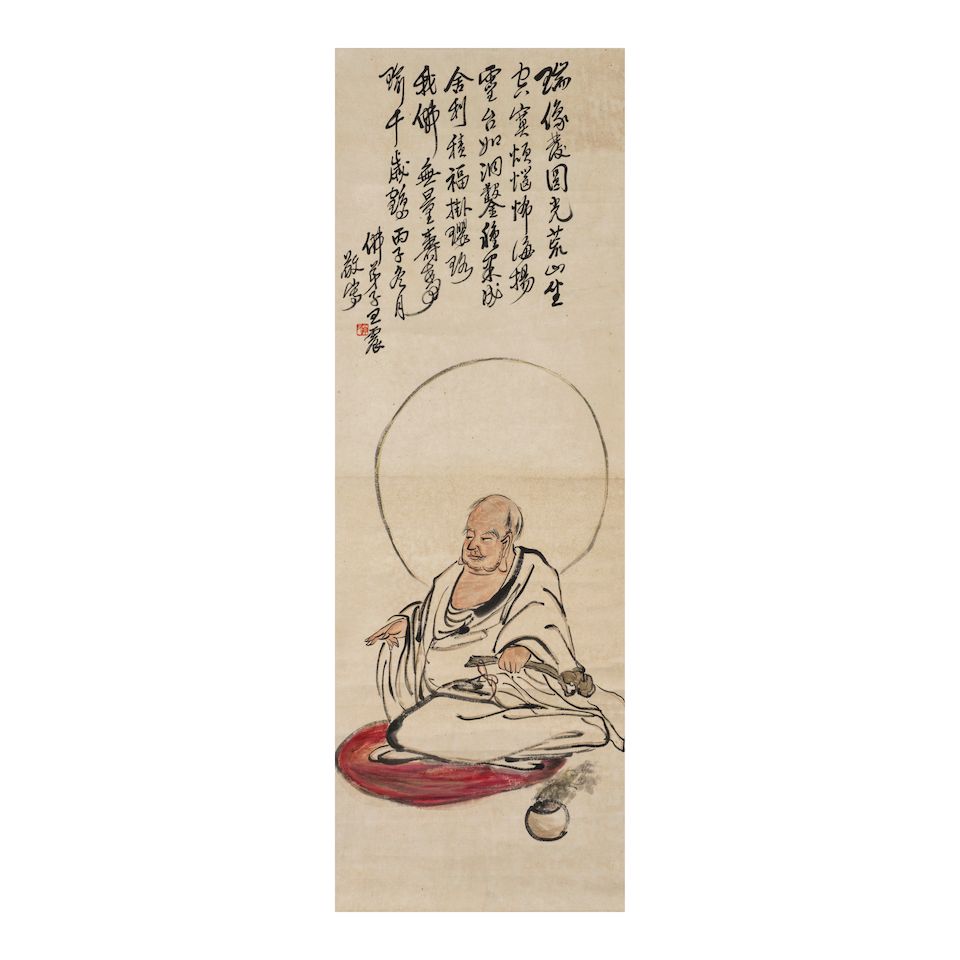 瑞像發圓光荒山坐
空寞煩惱怖海揚
靈台如洞鑿種果成
舍利積福掛瓔珞
我佛無量壽高
踰千歲鶴丙子冬月
佛弟子王震
敬寫